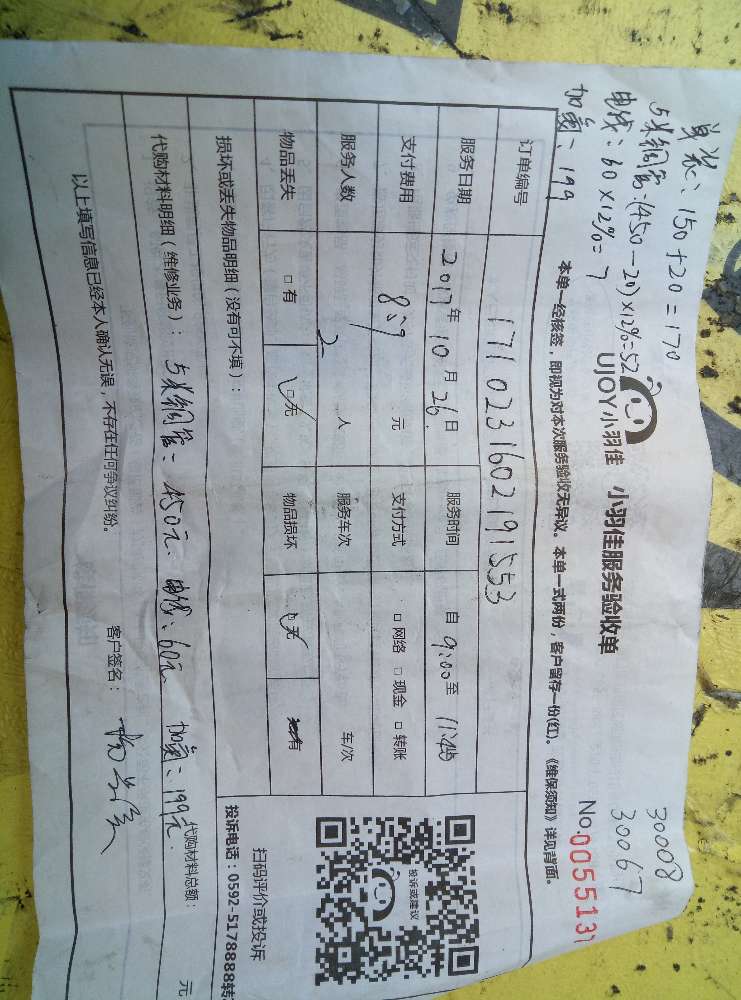 单装：150+20=170
5米铜管：(450-20)×12%=52
电线：60×12%=7
加氟：199
30008
30067
UJOY小羽佳 小羽佳服务验收单
No.0055131
本单一经核签，即视为对本次服务验收无异议。本单一式两份，客户留存一份(红)。《维保须知》详见背面。
订单编号 1710231602191553
服务日期 2017年10月26日 服务时间 自9:00至11:45
支付费用 879元 支付方式 □网络 □现金 □转账
服务人数 2人 服务车次 车/次
物品丢失 □有 □无 物品损坏 □无 有
损坏或丢失物品明细（没有可不填）：
代购材料明细（维修业务）：5米铜管：450元. 电线：60元 加氟：199元. 代购材料总额： 元
以上填写信息已经本人确认无误，不存在任何争议纠纷。
客户签名：
投诉或建议
扫码评价或投诉
投诉电话：0592-5178888转